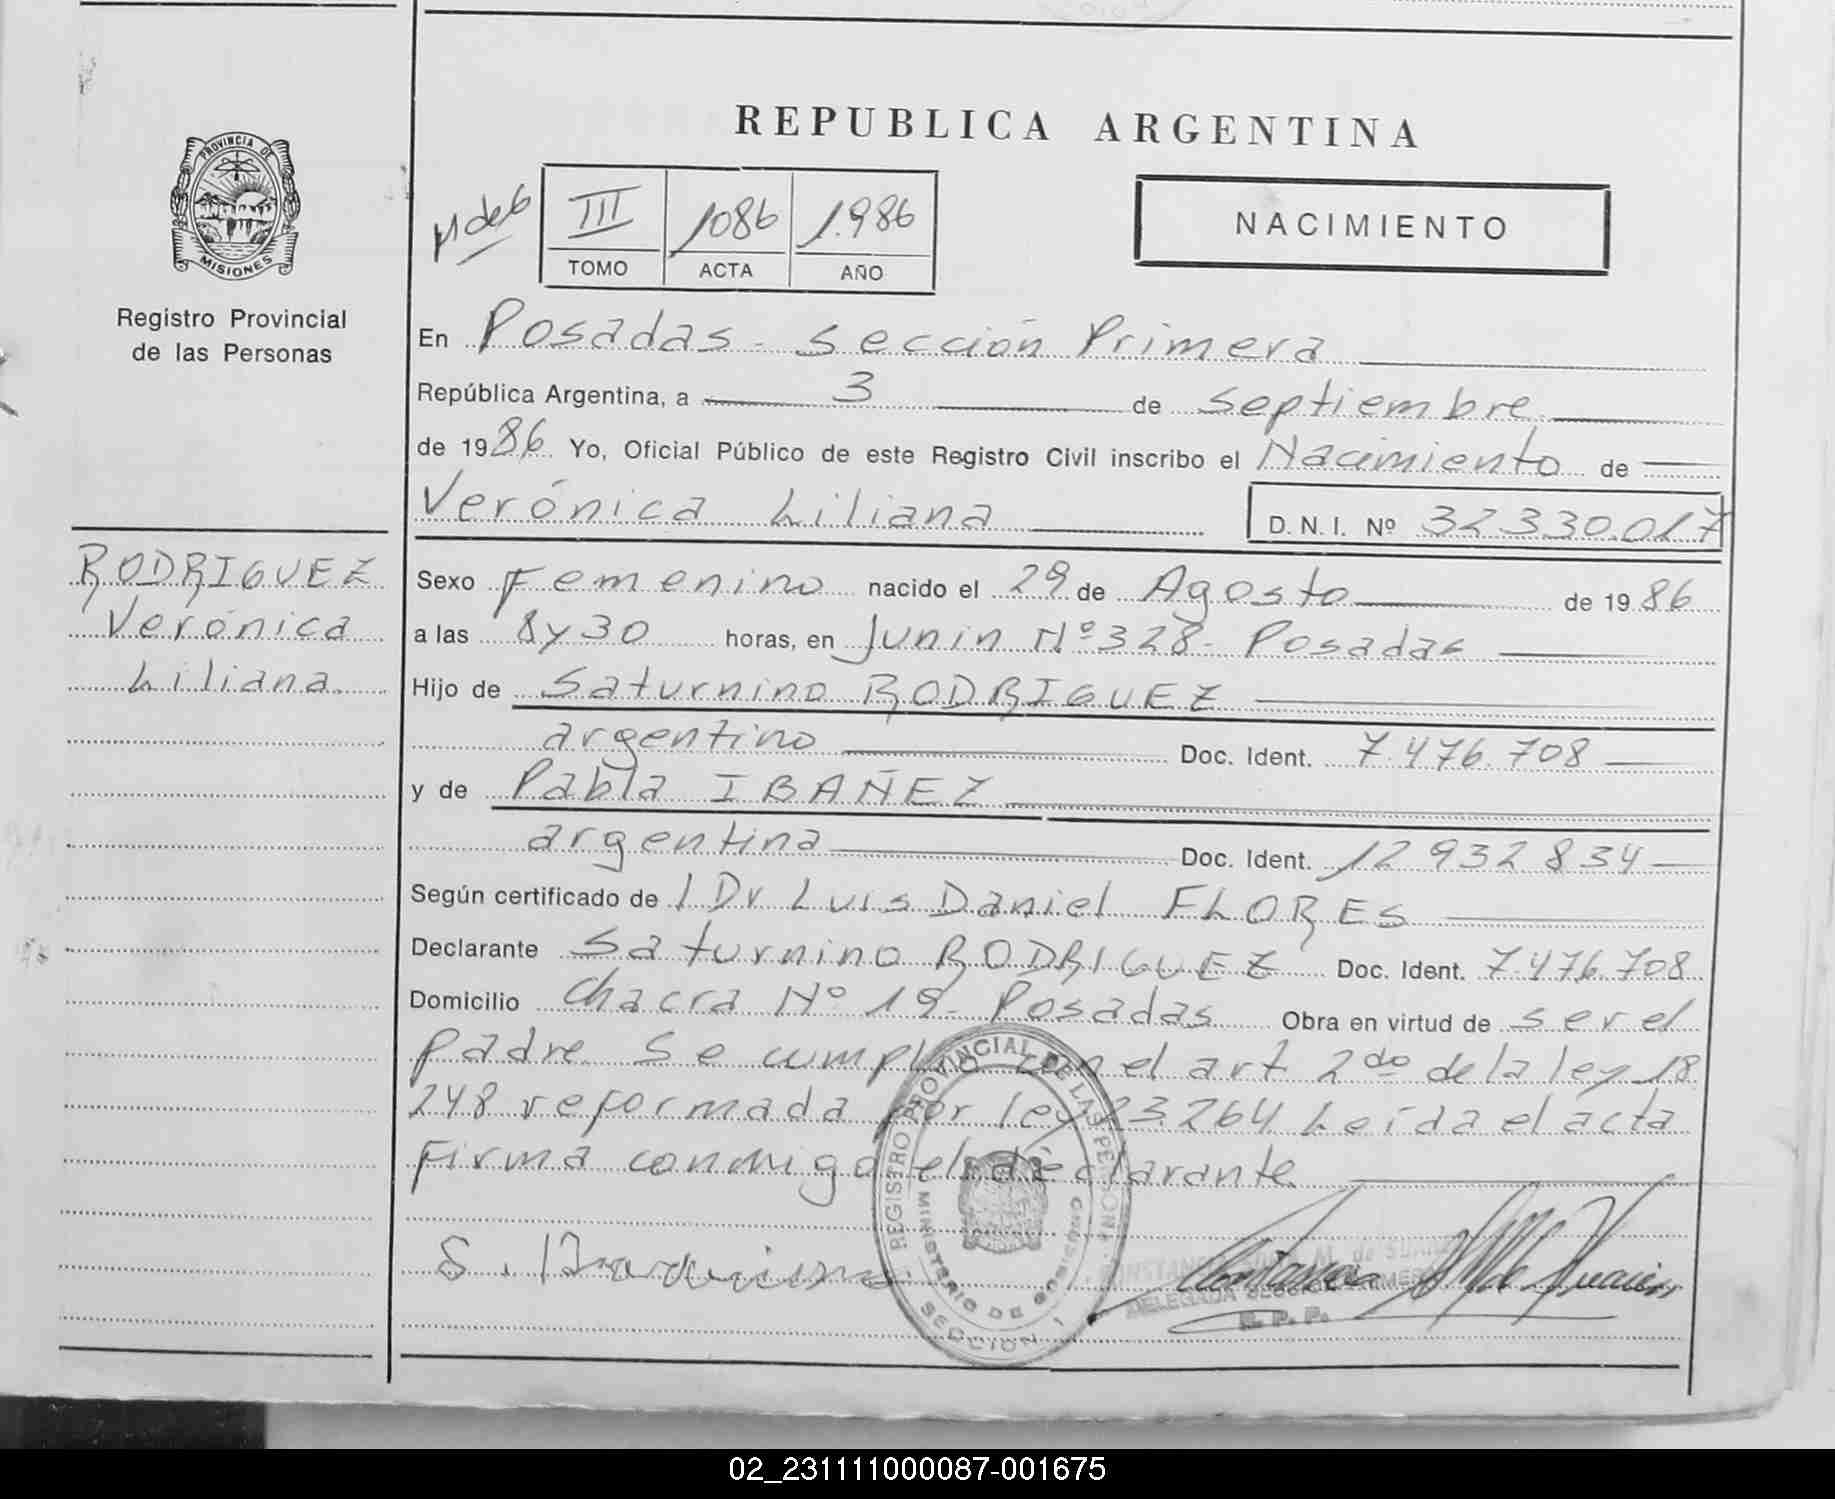 REPUBLICA ARGENTINA
PROVINCIA DE
MISIONES
Registro Provincial
de las Personas
III 1086 1.986
TOMO ACTA AÑO
NACIMIENTO
En Posadas - Sección Primera
República Argentina, a 3 de Septiembre
de 1986 Yo, Oficial Público de este Registro Civil inscribo el Nacimiento de
Verónica Liliana D.N.I. Nº 32.330.017
RODRIGUEZ
Verónica
Liliana
Sexo Femenino nacido el 29 de Agosto de 1986
a las 8 y 30 horas, en Junin Nº 328 - Posadas
Hijo de Saturnino RODRIGUEZ
argentino Doc. Ident. 7.476.708
y de Pabla IBAÑEZ
argentina Doc. Ident. 12932834
Según certificado de l Dr Luis Daniel FLORES
Declarante Saturnino RODRIGUEZ Doc. Ident. 7.476.708
Domicilio Chacra Nº 19 - Posadas Obra en virtud de ser el
padre Se cumplio con el art 2do de la ley 18
248 reformada por ley 23.264 Leída el acta
Firma conmigo el declarante
REGISTRO PROVINCIAL DE LAS PERSONAS
MINISTERIO DE GOBIERNO
SECCION 1
DELEGADA SECCION PRIMERA
R. P. P.
02_231111000087-001675